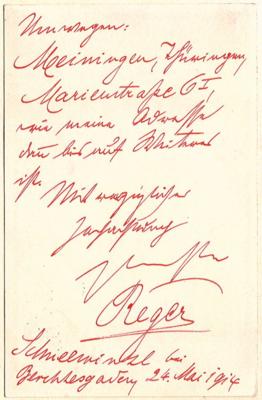 Meiningen, Thüringen,
Marienstraße 6 I,
wie meine Adresse
bis auf Weiteres
ist.
Mit vorzüglicher
Hochachtung
Reger
Schneewinkl bei
Berchtesgaden, 24. Mai 1914